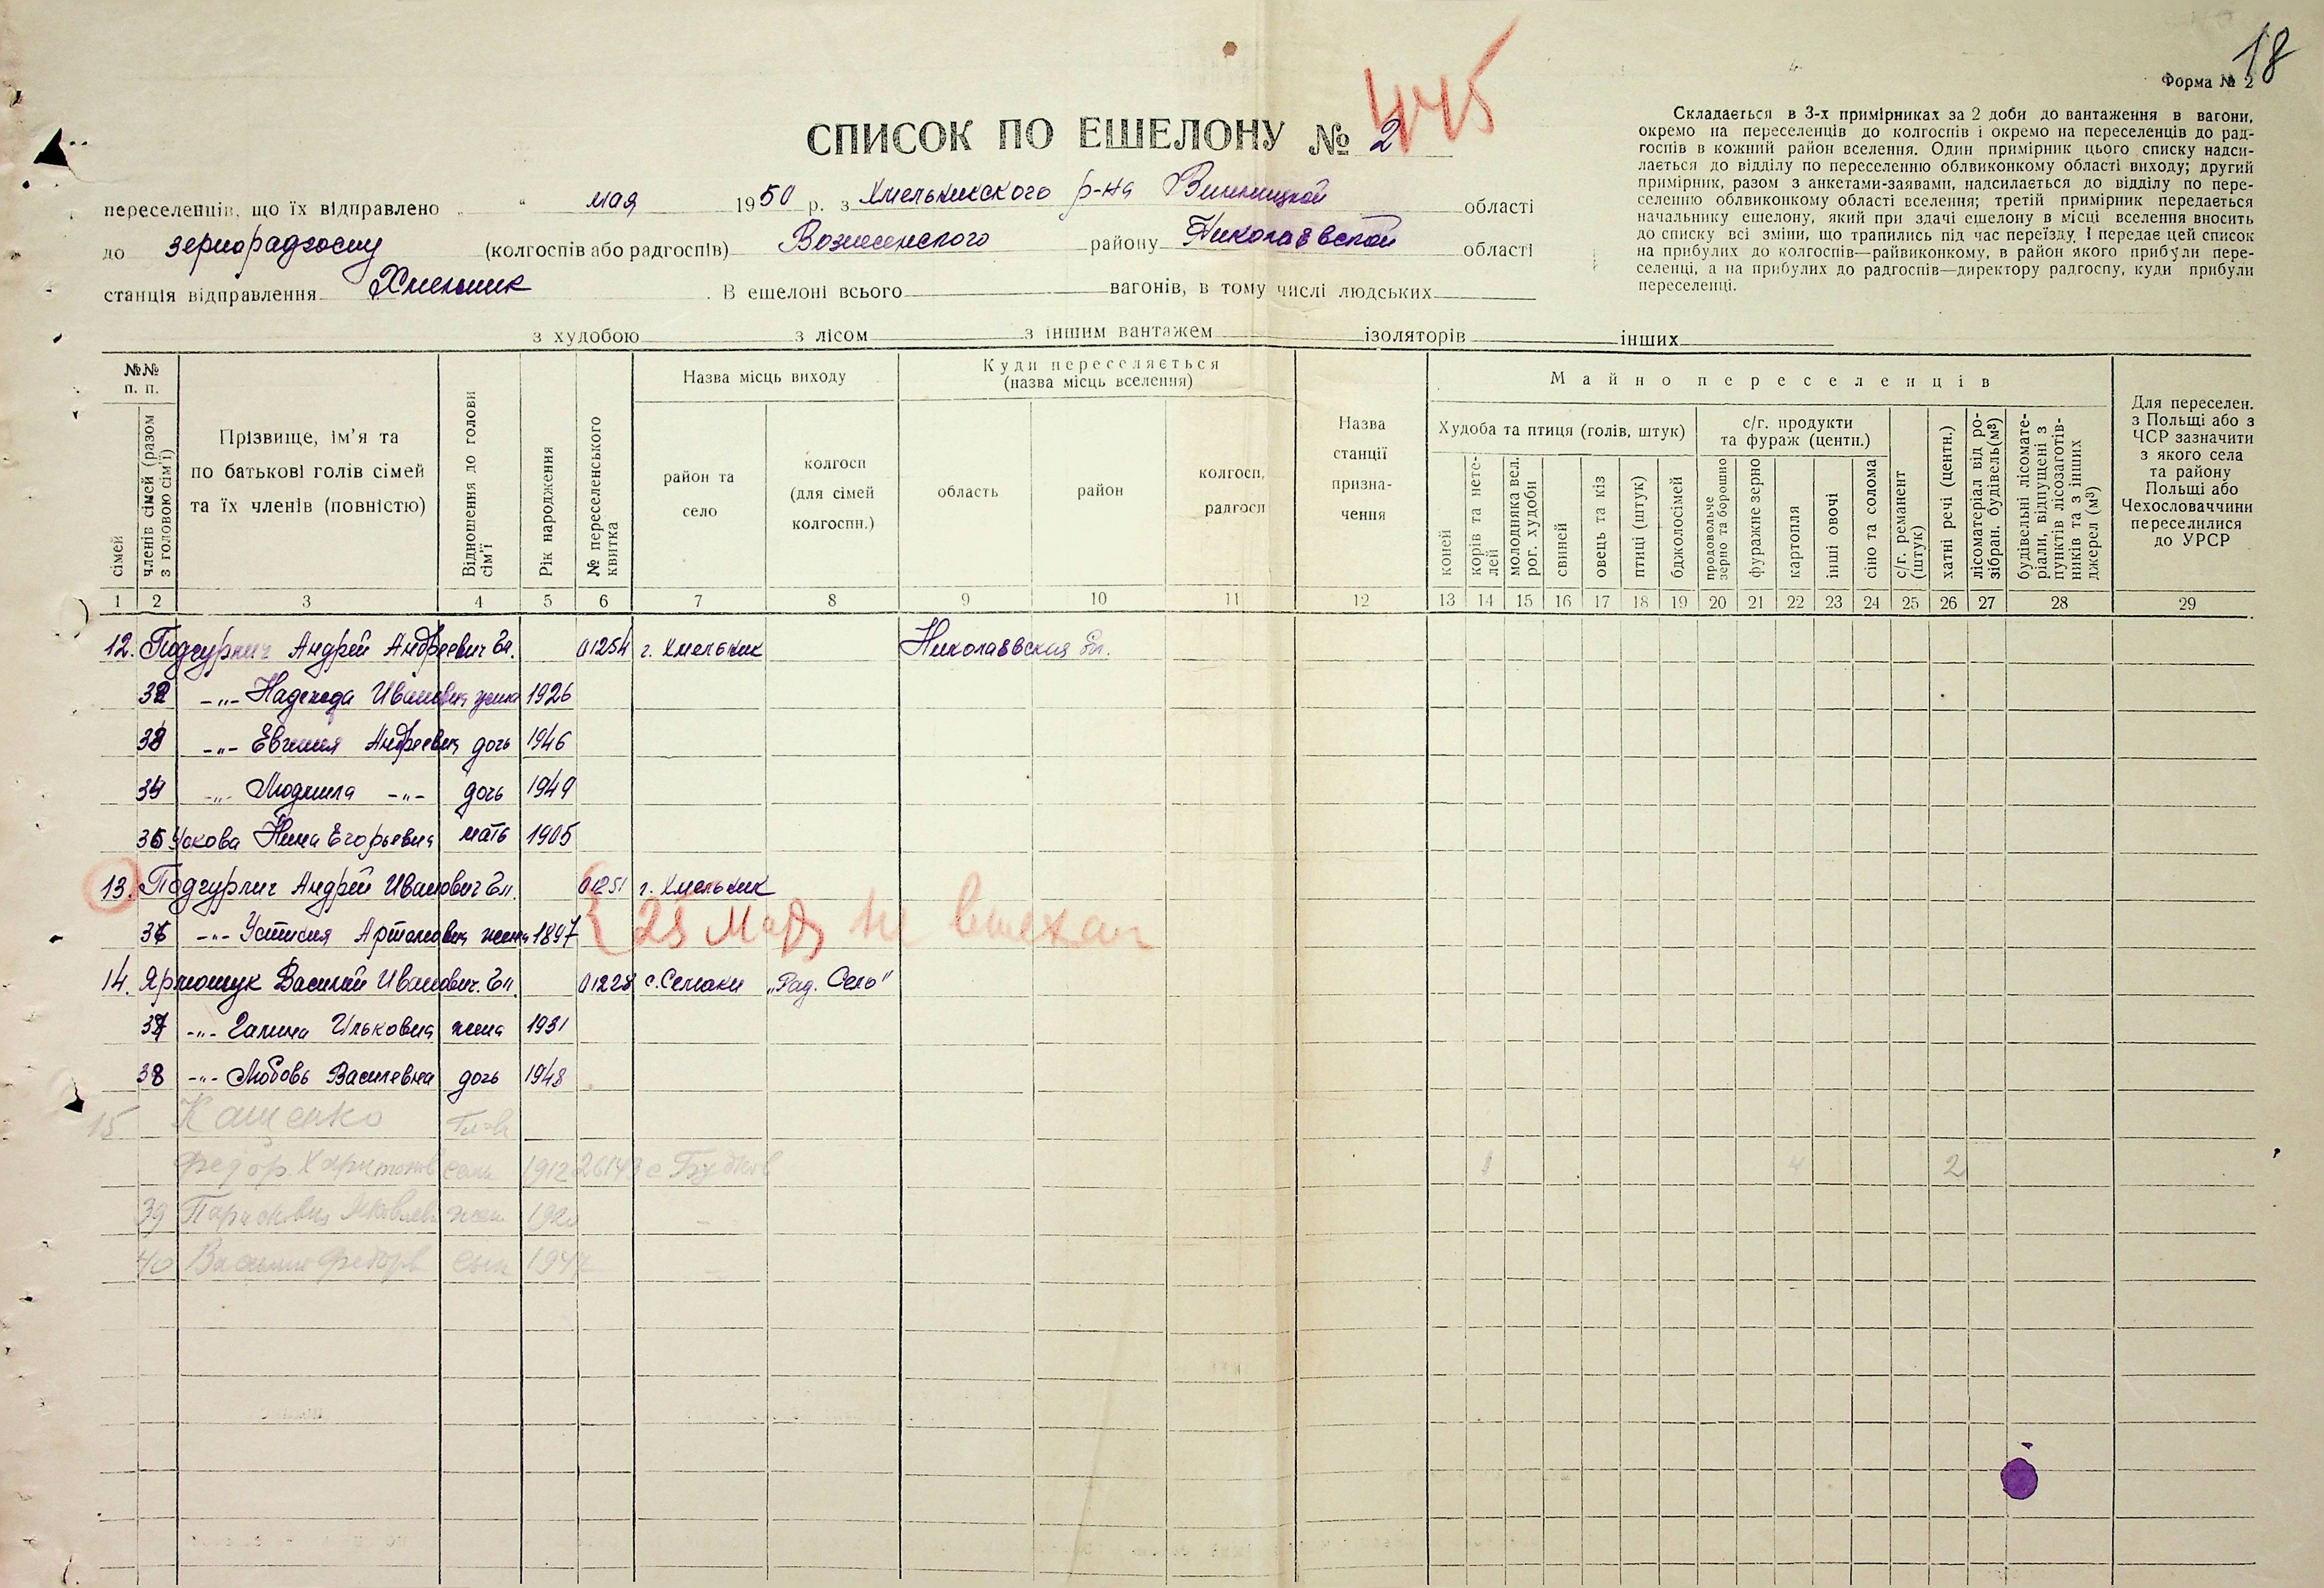 18
Форма № 2
445
СПИСОК ПО ЕШЕЛОНУ № 2
Складається в 3-х примірниках за 2 доби до вантаження в вагони,
окремо на переселенців до колгоспів і окремо на переселенців до рад-
госпів в кожний район вселення. Один примірник цього списку надси-
лається до відділу по переселенню облвиконкому області виходу; другий
примірник, разом з анкетами-заявами, надсилається до відділу по пере-
селенню облвиконкому області вселення; третій примірник передається
начальнику ешелону, який при здачі ешелону в місці вселення вносить
до списку всі зміни, що трапились під час переїзду, і передає цей список
на прибулих до колгоспів—райвиконкому, в район якого прибули пере-
селенці, а на прибулих до радгоспів—директору радгоспу, куди прибули
переселенці.
переселенців, що їх відправлено „ “ мая 1950 р. з Хмельникского р-на Винницкой області
до зернорадгоспу (колгоспів або радгоспів) Вознесенского району Николаевской області
станція відправлення Хмельник. В ешелоні всього вагонів, в тому числі людських
з худобою з лісом з іншим вантажем ізоляторів інших
№№ п. п.
сімей
членів сімей (разом з головою сім'ї)
Прізвище, ім'я та
по батькові голів сімей
та їх членів (повністю)
Відношення до голови сім'ї
Рік народження
№ переселенського квитка
Назва місць виходу
район та село
колгосп (для сімей колгоспн.)
Куди переселяється
(назва місць вселення)
область
район
колгосп, радгосп
Назва станції призна-чення
Майно переселенців
Худоба та птиця (голів, штук)
коней
корів та нете-лей
молодняка вел. рог. худоби
свиней
овець та кіз
птиці (штук)
бджолосімей
с/г. продукти та фураж (центн.)
продовольче зерно та борошно
фуражне зерно
картопля
інші овочі
сіно та солома
с/г. реманент (штук)
хатні речі (центн.)
лісоматеріал від ро-зібран. будівель (м³)
будівельні лісомате-ріали, відпущені з пунктів лісозаготів-ників та з інших джерел (м³)
Для переселен.
з Польщі або з
ЧСР зазначити
з якого села
та району
Польщі або
Чехословаччини
переселилися
до УРСР
1 2 3 4 5 6 7 8 9 10 11 12 13 14 15 16 17 18 19 20 21 22 23 24 25 26 27 28 29
12. Подгурнич Андрей Андреевич Гл. 01254 г. Хмельник Николаевская обл.
32 -„- Надежда Ивановна жена 1926
33 -„- Евгения Андреевна дочь 1946
34 -„- Людмила -„- дочь 1949
35 Ускова Нина Егорьевна мать 1905
13. Подгурнич Андрей Иванович Гл. 01251 г. Хмельник
36 -„- Устиния Артемовна жена 1897 25 мая не выехал
14. Ярмошук Василий Иванович. Гл. 01228 с. Селаки „Рад. Село"
37 -„- Галина Ильковна жена 1931
38 -„- Любовь Васильевна дочь 1948
15 Кащенко Гл-ва
Федор Харитонов семи 1912 26143 с Будков 1 4 2
39 Парасковья Яковлев жен
40 Василий Федоров сын 1947